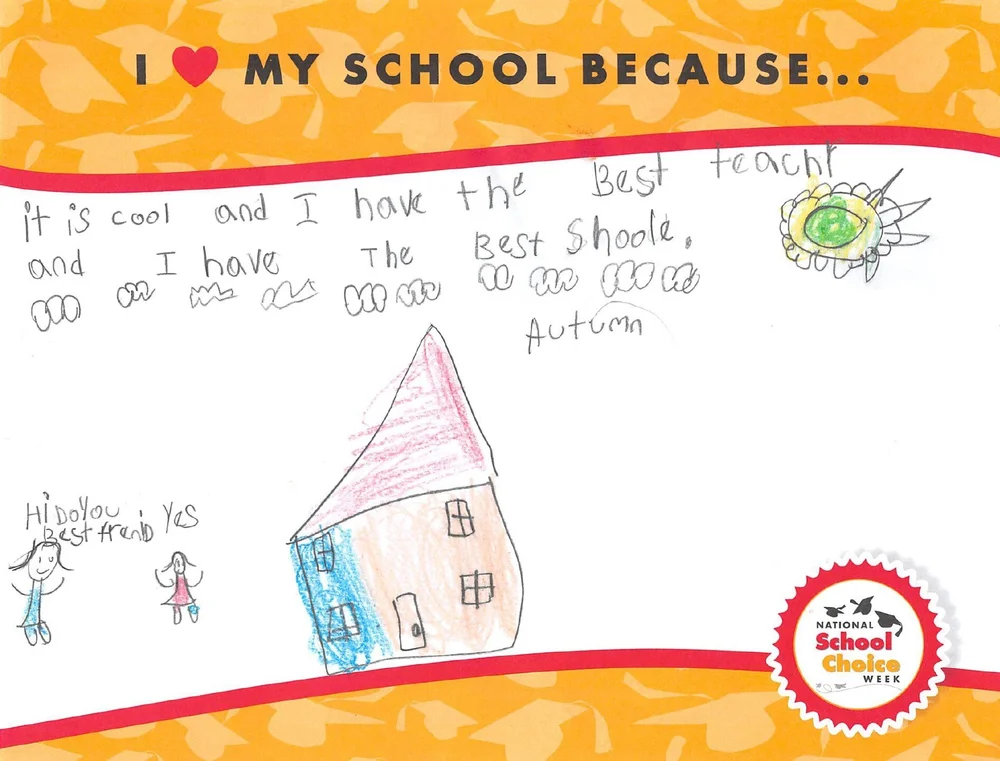 I ❤ MY SCHOOL BECAUSE...
it is cool and I have the Best teachr
and I have The Best Shoole.
Autumn
Hi Do You
Best frenb
Yes
NATIONAL
School
Choice
WEEK